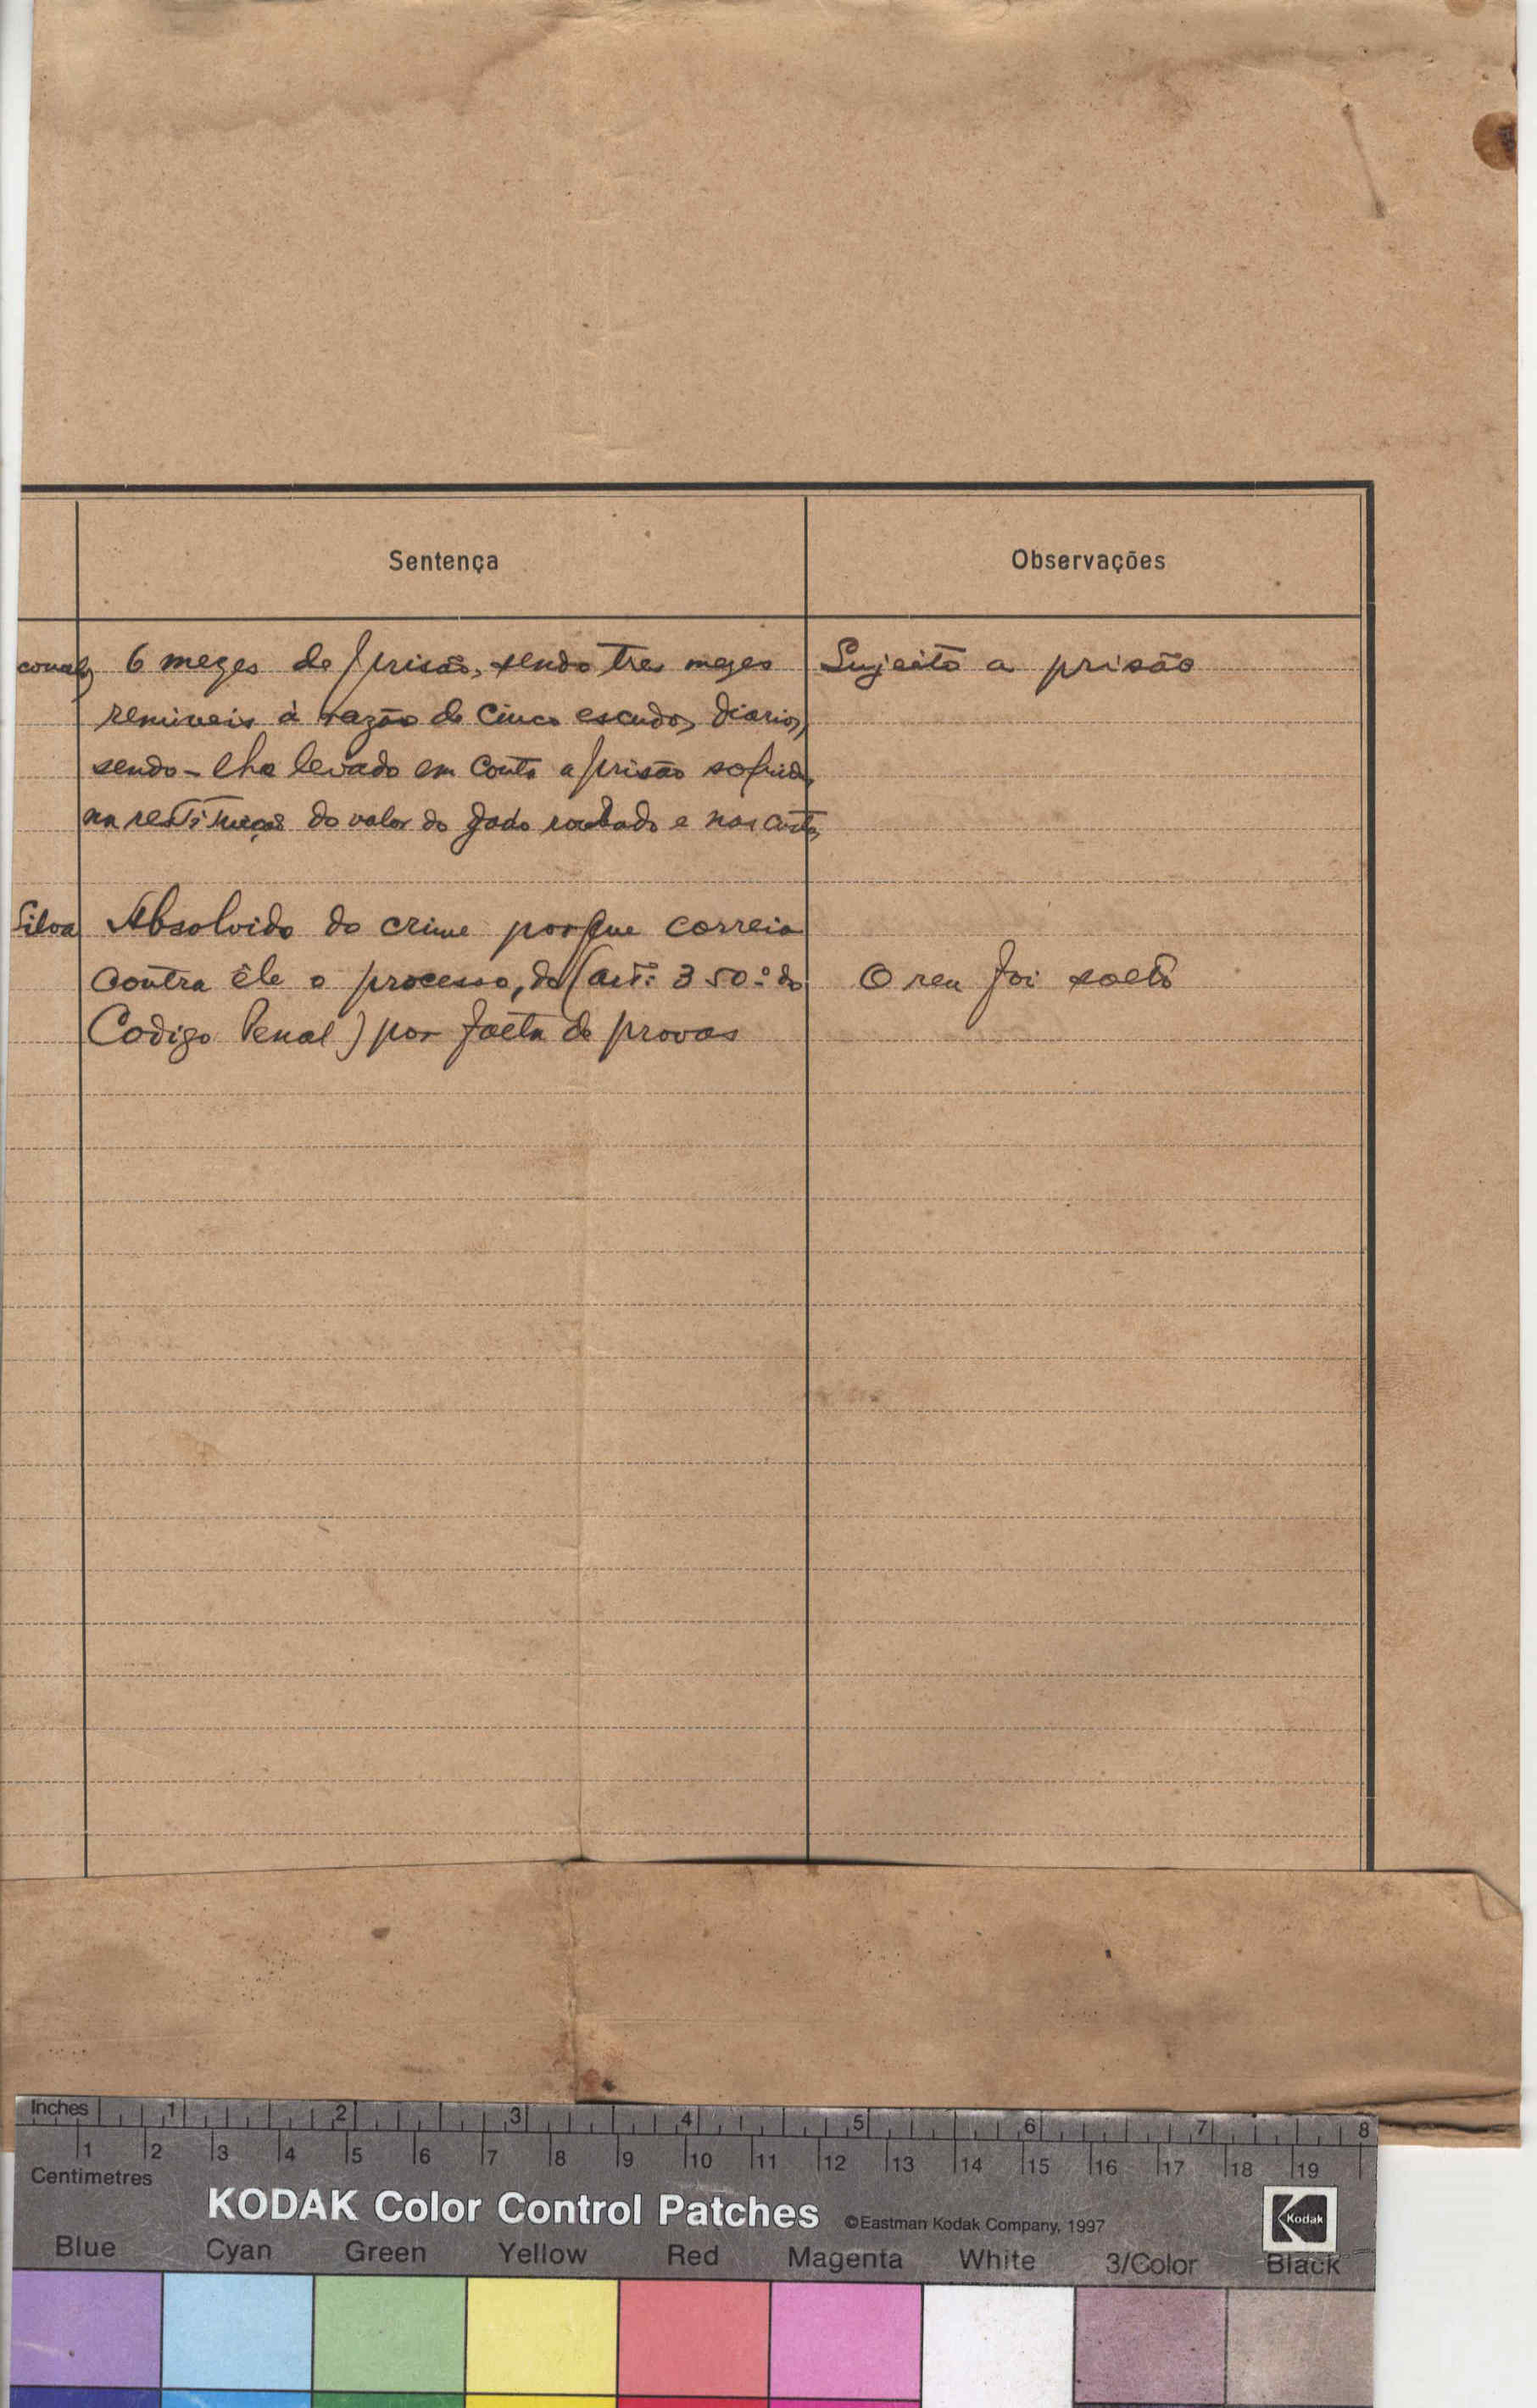 Sentença
Observações
6 mezes de prisão, sendo tres mezes
remiveis á razão de cinco escudos diarios,
sendo-lhe levado em conta a prisão sofrida,
na restituição do valor do gado roubado e nas custas
Sujeito a prisão
Silva
Absolvido do crime porque correia
contra êle o processo, do (art: 350.º do
Codigo Penal) por falta de provas
O reu foi solto
Inches 1 2 3 4 5 6 7 8
1 2 3 4 5 6 7 8 9 10 11 12 13 14 15 16 17 18 19
Centimetres
KODAK Color Control Patches ©Eastman Kodak Company, 1997 Kodak
Blue Cyan Green Yellow Red Magenta White 3/Color Black